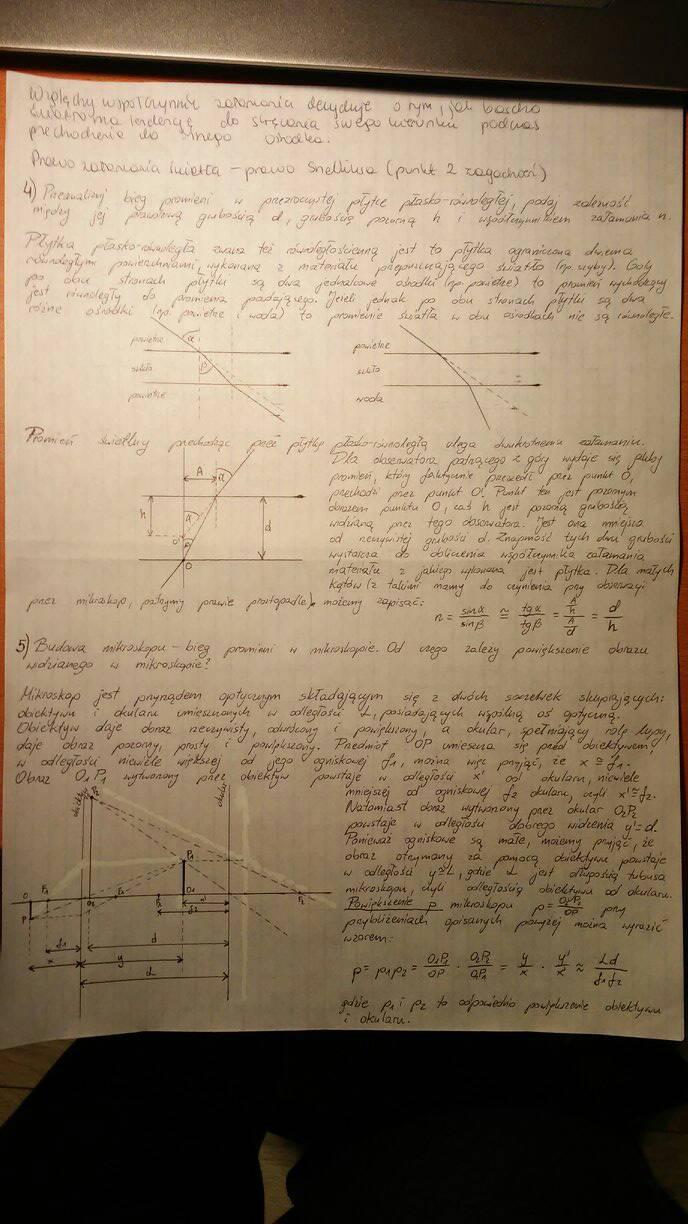 Względny współczynnik załamania decyduje o tym, jak bardzo
światło ma tendencję do skręcania swego kierunku podczas
przechodzenia do innego ośrodka.
Prawo załamania światła - prawo Snelliusa (punkt 2 zagadnień)
4) Przeanalizuj bieg promieni w przezroczystej płytce płasko-równoległej, podaj zależność
między jej prawdziwą grubością d, grubością pozorną h i współczynnikiem załamania n.
Płytka płasko-równoległa zwana też równoległościenną jest to płytka ograniczona dwiema
równoległymi powierzchniami, wykonana z materiału przepuszczającego światło (np. szyby). Gdy
po obu stronach płytki są dwa jednakowe ośrodki (np. powietrze) to promień wychodzący
jest równoległy do promienia padającego. Jeżeli jednak po obu stronach płytki są dwa
różne ośrodki (np. powietrze i woda) to promienie światła w obu ośrodkach nie są równoległe.
powietrze α powietrze
szkło β szkło
powietrze woda
Promień świetlny przechodząc przez płytkę płasko-równoległą ulega dwukrotnemu załamaniu.
Dla obserwatora patrzącego z góry wydaje się jakby
promień, który faktycznie przeszedł przez punkt O,
przechodzi przez punkt O'. Punkt ten jest pozornym
obrazem punktu O, zaś h jest pozorną grubością
widzianą przez tego obserwatora. Jest ona mniejsza
od rzeczywistej grubości d. Znajomość tych dwu grubości
wystarcza do obliczenia współczynnika załamania
materiału z jakiego wykonana jest płytka. Dla małych
kątów (z takimi mamy do czynienia przy obserwacji
A α
h α d
O' β
O
przez mikroskop, patrzymy prawie prostopadle) możemy zapisać:
n = sinα/sinβ ≅ tgα/tgβ = (A/h)/(A/d) = d/h
5) Budowa mikroskopu - bieg promieni w mikroskopie. Od czego zależy powiększenie obrazu
widzianego w mikroskopie?
Mikroskop jest przyrządem optycznym składającym się z dwóch soczewek skupiających:
obiektywu i okularu umieszczonych w odległości L, posiadających wspólną oś optyczną.
Obiektyw daje obraz rzeczywisty, odwrócony i powiększony, a okular, spełniający rolę lupy,
daje obraz pozorny, prosty i powiększony. Przedmiot OP umieszcza się przed obiektywem,
w odległości niewiele większej od jego ogniskowej f1, można więc przyjąć, że x ≅ f1.
Obraz O1P1 wytworzony przez obiektyw powstaje w odległości x' od okularu, niewiele
mniejszej od ogniskowej f2 okularu, czyli x' ≅ f2.
Natomiast obraz wytworzony przez okular O2P2
powstaje w odległości dobrego widzenia y' = d.
Ponieważ ogniskowe są małe, możemy przyjąć, że
obraz otrzymany za pomocą obiektywu powstaje
w odległości y ≅ L, gdzie L jest długością tubusa
mikroskopu, czyli odległością obiektywu od okularu.
Powiększenie p mikroskopu p = O2P2/OP przy
przybliżeniach opisanych powyżej można wyrazić
wzorem:
p = p1p2 = O1P1/OP · O2P2/O1P1 = y/x · y'/x' ≈ Ld/f1f2
gdzie p1 i p2 to odpowiednio powiększenie obiektywu
i okularu.
okular
P2
P1
O F1 O2 F1 F2 O1 F2
P
f1 f2 x'
d
x y
L